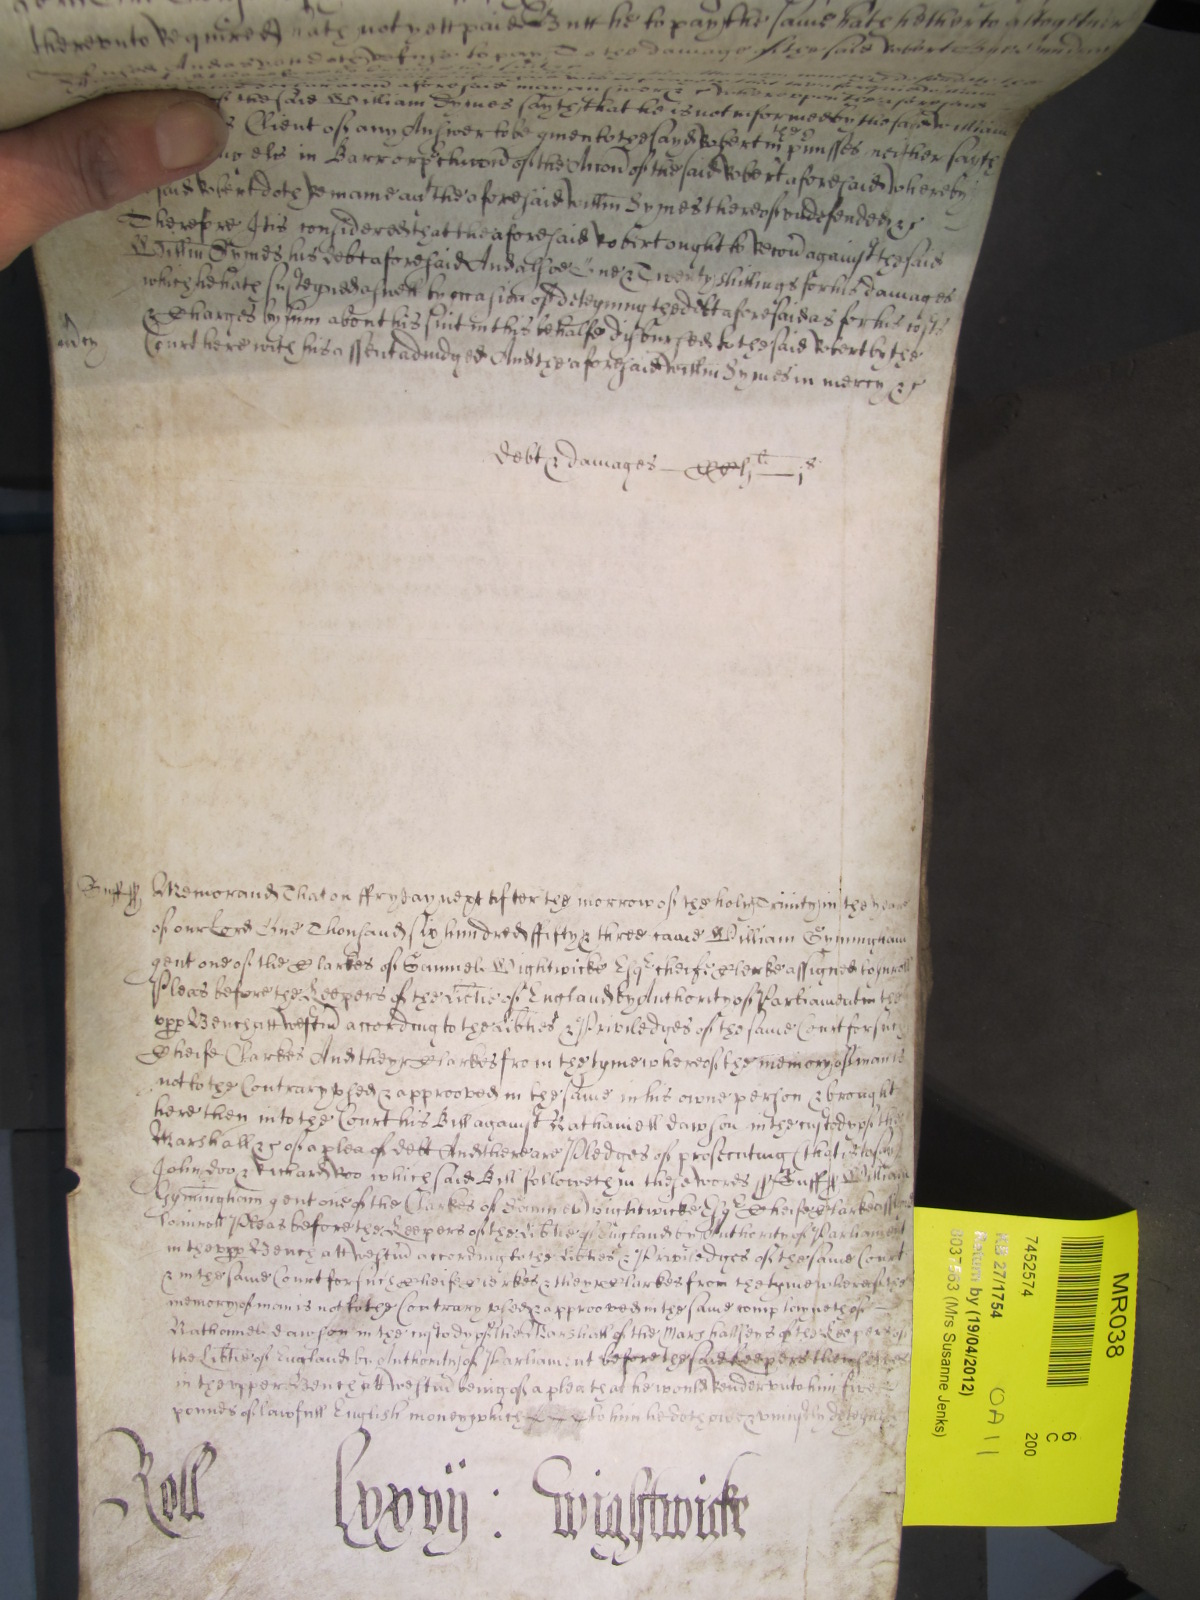 thereunto Required hath not yett paid But he to pay the same hath hetherto altogether
the said William Symes sayth that he is not informed by the said William
Client of any Answer to be given to the said Robert in the p'misses neither saith
in Barr or p'clusion of the Accon of the said Robert aforesaid whereby
said Robert doth Remaine agt the aforesaid Willm Symes thereof undefended &c
Therefore It is considered that the aforesaid Robert ought to Recou' against the said
Willm Symes his debt aforesaid And alsoe One & Twenty shillings for his damages
which he hath susteyned aswell by occasion of deteyning the debt aforesaid as for his costs
& Charges by him about his suit in this behalfe disbursed to the said Robert by the
Court here with his assent adiudged And the aforesaid Willm Symes in mercy &c
debt & damages
Suff ss Memorand That on ffryday next after the morrow of the holy Trinity in the yeare
of our Lord One Thousand six hundred ffifty & three came William Gymingham
gent one of the Clarkes of Samuel Wightwicke Esqr cheife Clerke assigned to inroll
Pleas before the Keepers of the Lib'tie of England by Authority of Parliament in the
upp Bench att Westm according to the Lib'ties & Priviledges of the same Court for such
Cheife Clarkes And theyr Clarkes from the tyme whereof the memory of man is
not to the Contrary vsed & approoved in the same in his owne person & brought
here then into the Court his Bill against Nathaniell dawson in the custody of the
Marshall &c of a plea of debt And there are Pledges of prosecuting (that is to say)
John doo & Richard Roo which said Bill followeth in these words ss Suff ss William
Gymingham gent one of the Clarkes of Samuel Wightwicke Esqr Cheife Clarke assigned
to inroll Pleas before the Keepers of the Lib'tie of England by Authority of Parliament
in the upp Bench att Westm according to the Lib'ties & Priviledges of the same Court
& in the same Court for such Cheife Clerkes & theyr Clarkes from the tyme whereof the
memory of man is not to the Contrary vsed & approoved in the same complayneth of
Nathaniel dawson in the custody of the Marshall of the Marshallsey of the Keepers of
the Lib'tie of England by Authority of Parliament before the said Keepers themselves
in the upper Bench att Westm being of a plea that he would Render unto him five
pounds of lawfull English money which to him he doth owe & uniustly deteyne
Roll lxxvij : Wightwicke
MR038
6
C
200
7452574
KB 27/1754
Return by (19/04/2012)
8037563 (Mrs Susanne Jenks)
OA11